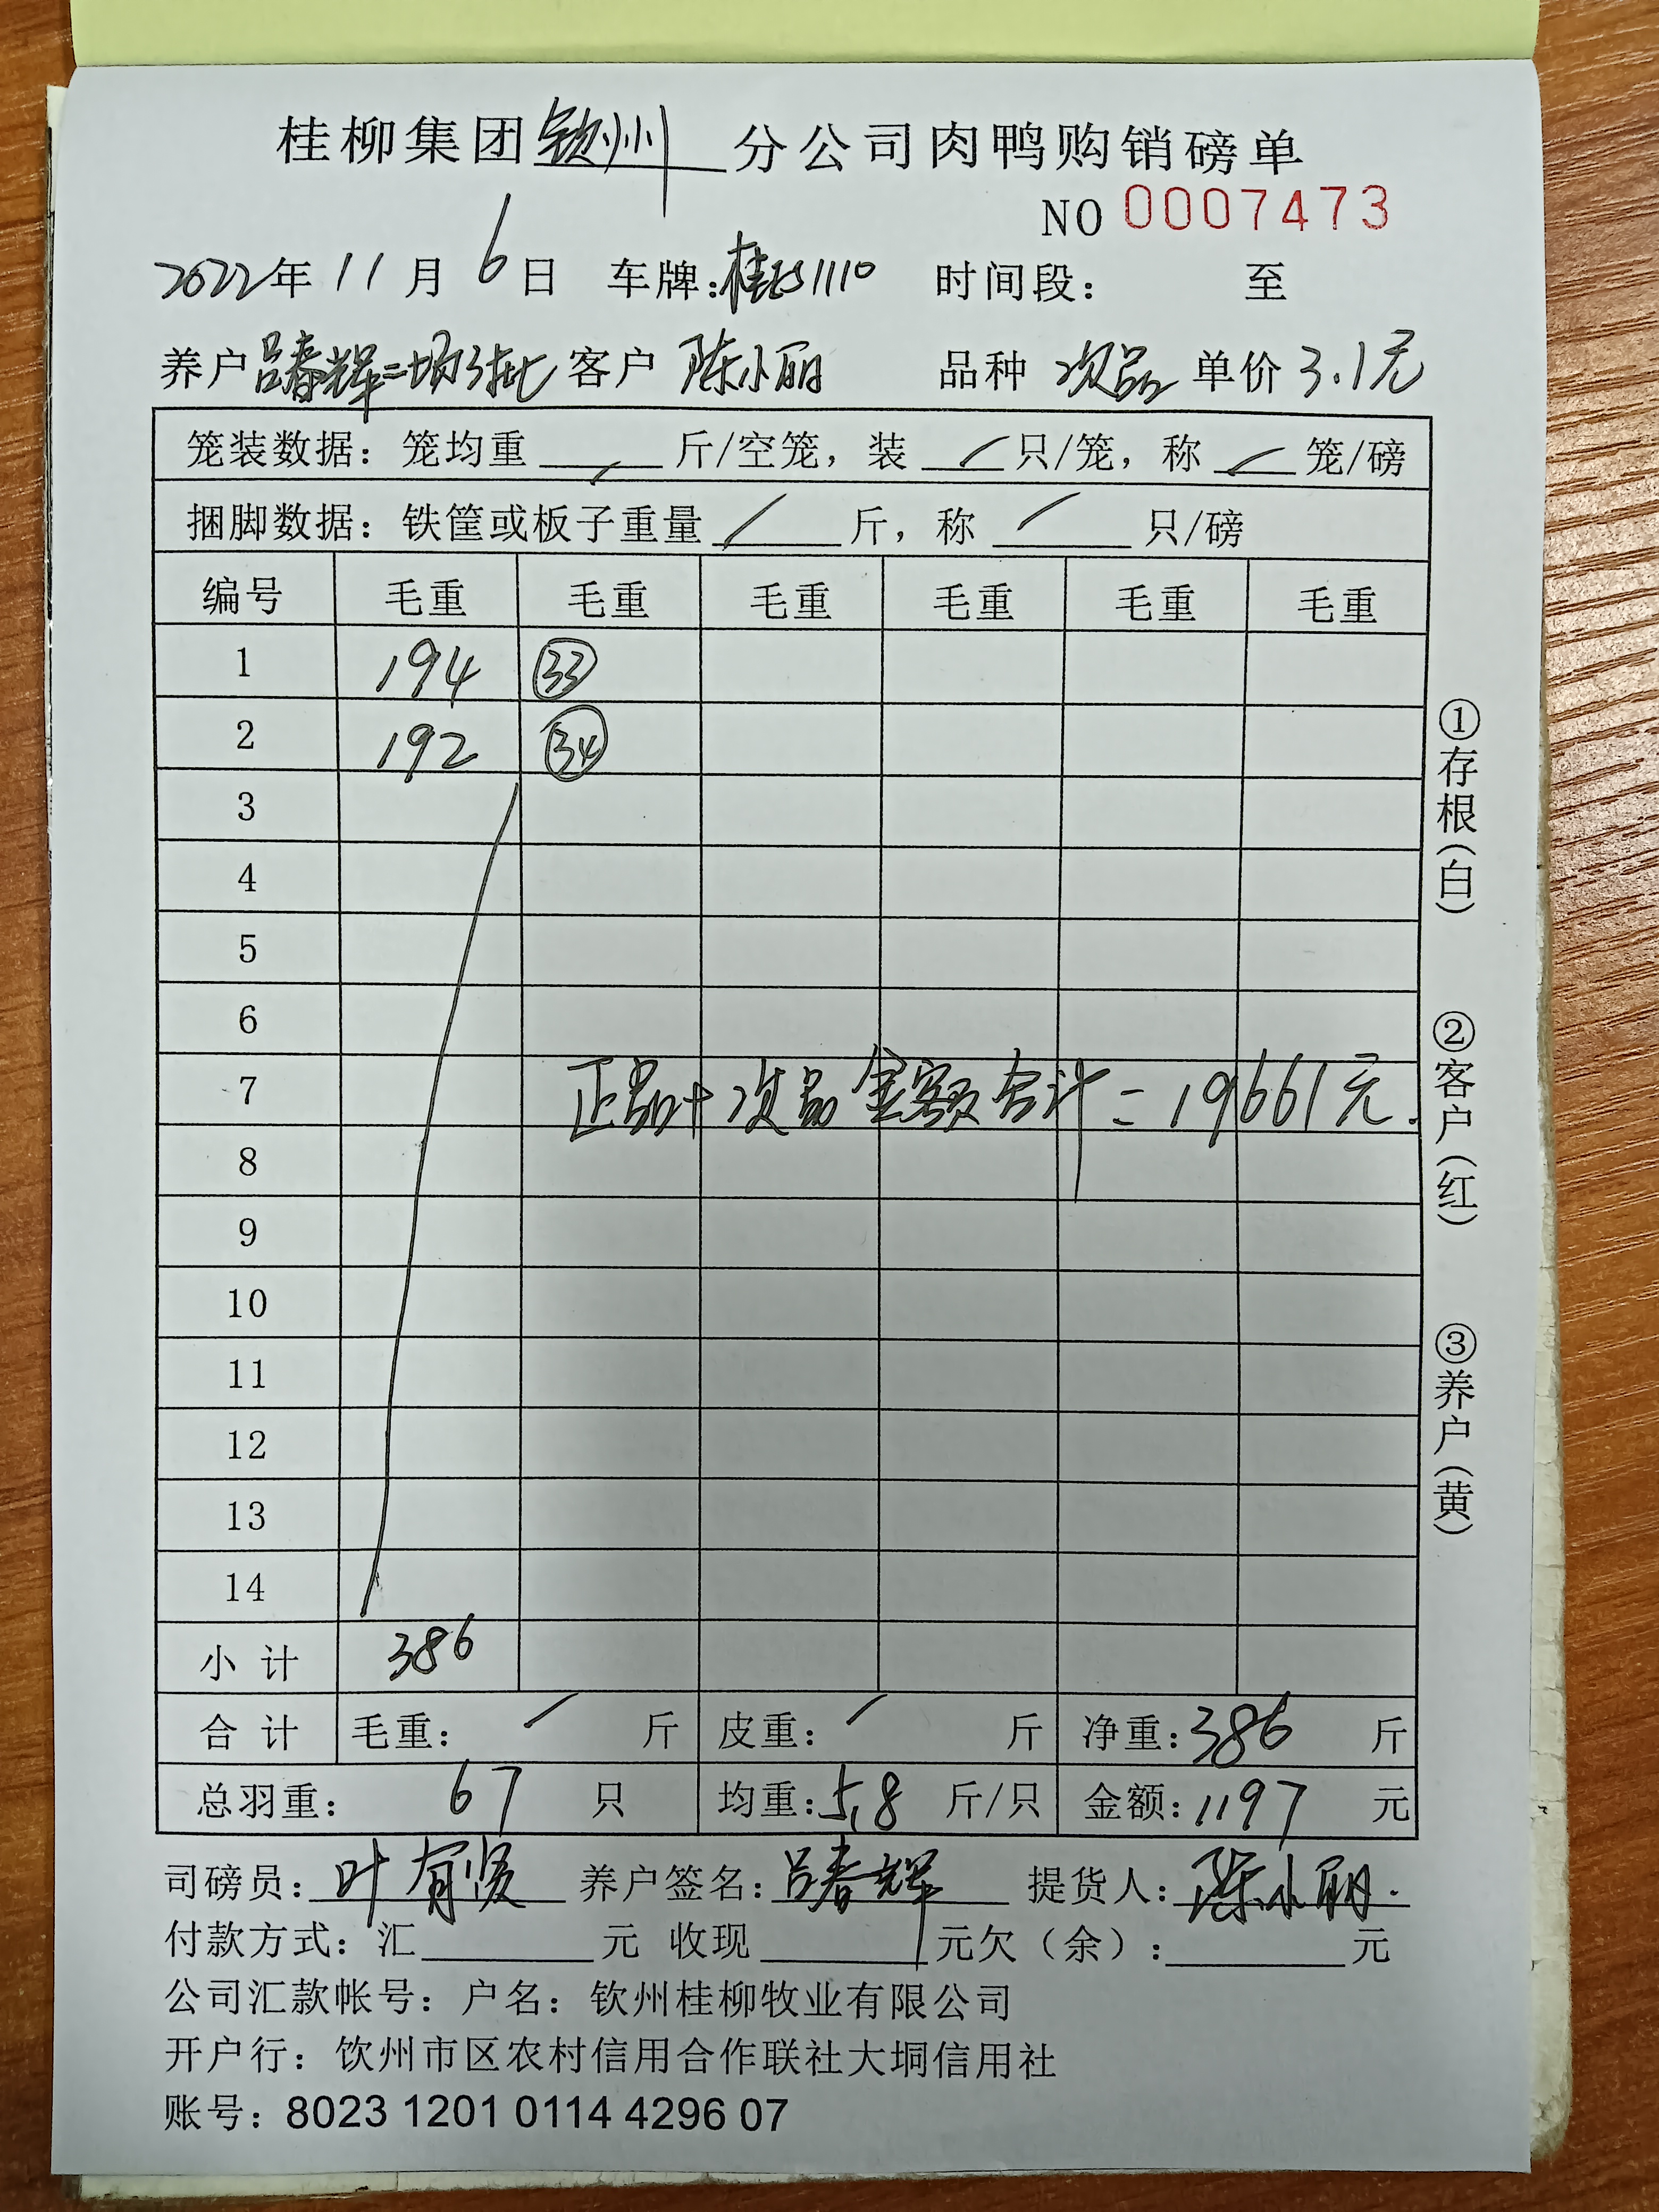 桂柳集团钦州分公司肉鸭购销磅单
NO 0007473
2022年 11月 6日 车牌: 时间段: 至
养户 吕春辉二场3批 客户 陈小丽 品种 次品 单价 3.1元
笼装数据: 笼均重 / 斤/空笼, 装 / 只/笼, 称 / 笼/磅
捆脚数据: 铁筐或板子重量 / 斤, 称 / 只/磅
编号 毛重 毛重 毛重 毛重 毛重 毛重
1 194 ㉝
2 192 ㉞
3
4
5
6
7 正品+次品金额合计=19661元.
8
9
10
11
12
13
14
小计 386
合计 毛重: / 斤 皮重: / 斤 净重: 386 斤
总羽重: 67 只 均重: 5.8 斤/只 金额: 1197 元
司磅员: 叶有贤 养户签名: 吕春辉 提货人: 陈小丽.
付款方式: 汇 元 收现 元欠(余): 元
公司汇款帐号: 户名: 钦州桂柳牧业有限公司
开户行: 钦州市区农村信用合作联社大垌信用社
账号: 8023 1201 0114 4296 07
①存根(白)
②客户(红)
③养户(黄)